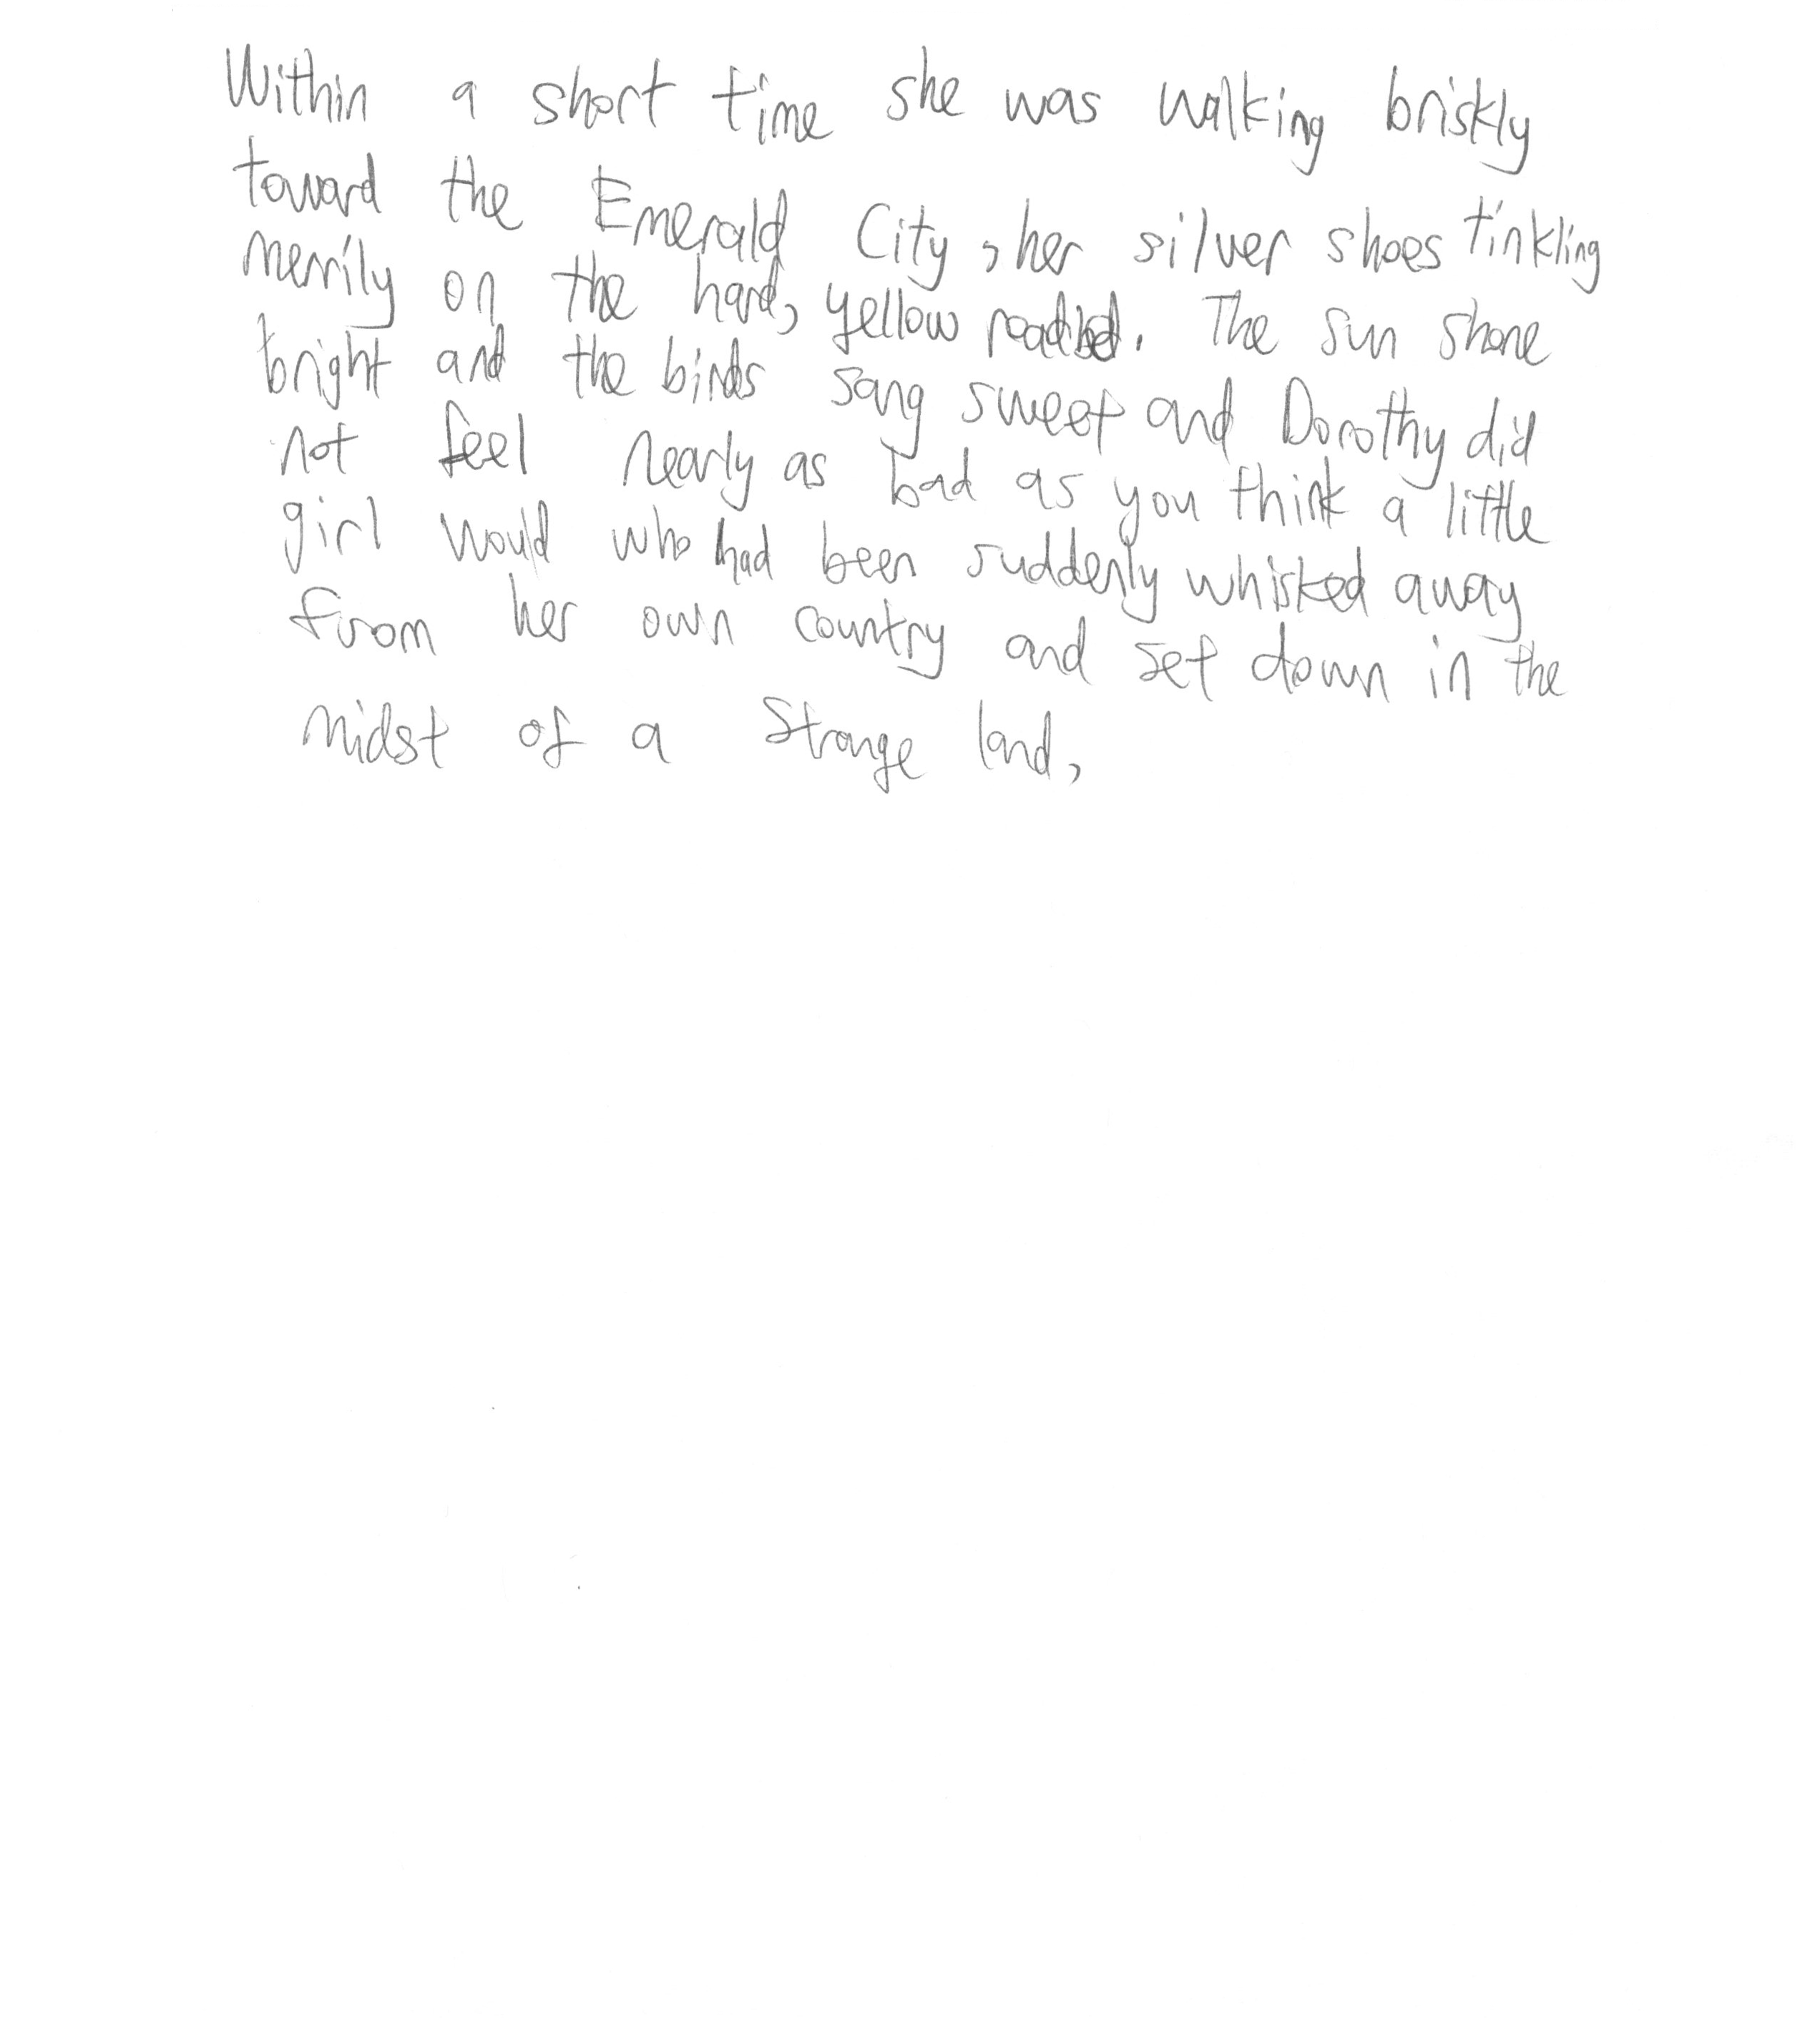 Within a short time she was walking briskly
toward the Emerald City, her silver shoes tinkling
merrily on the hard, yellow roadbed. The sun shone
bright and the birds sang sweet and Dorothy did
not feel nearly as bad as you think a little
girl would who had been suddenly whisked away
from her own country and set down in the
midst of a strange land,